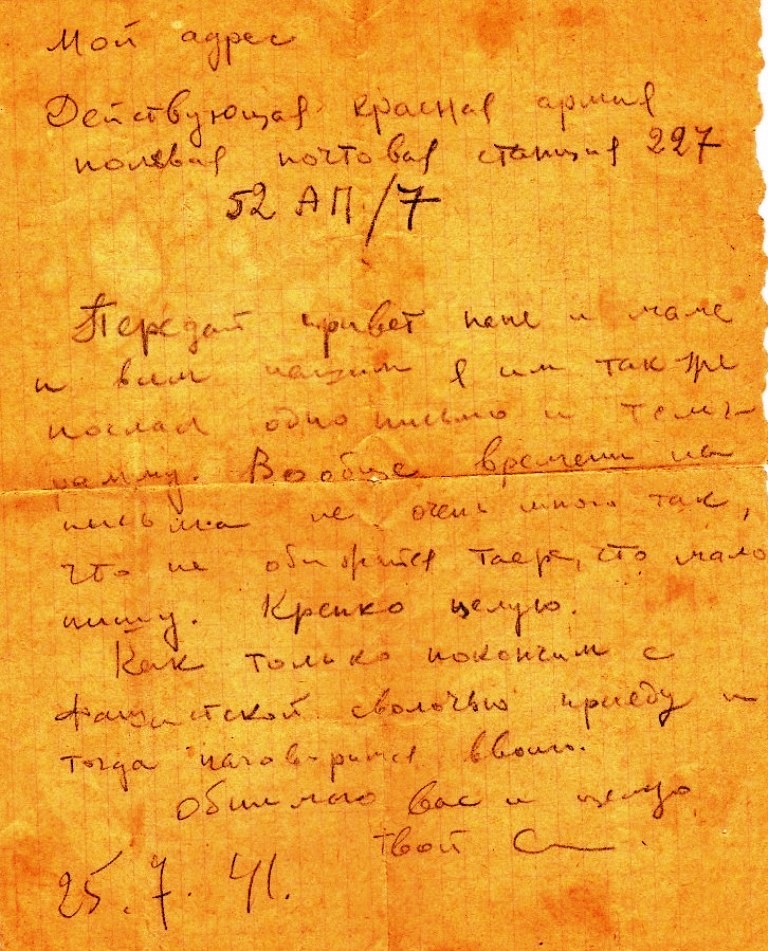 Мой адрес
Действующая красная армия
полевая почтовая станция 227
52 АП/7
Передай привет папе и маме
и всем нашим я им так-же
послал одно письмо и телег-
рамму. Вообще времени на
письма не очень много так,
что не обижайтеся, что мало
пишу. Крепко целую.
Как только покончим с
фашисткой сволочью приеду и
тогда наговоримся вволю.
Обнимаю вас и целую
твой
25.7.41.